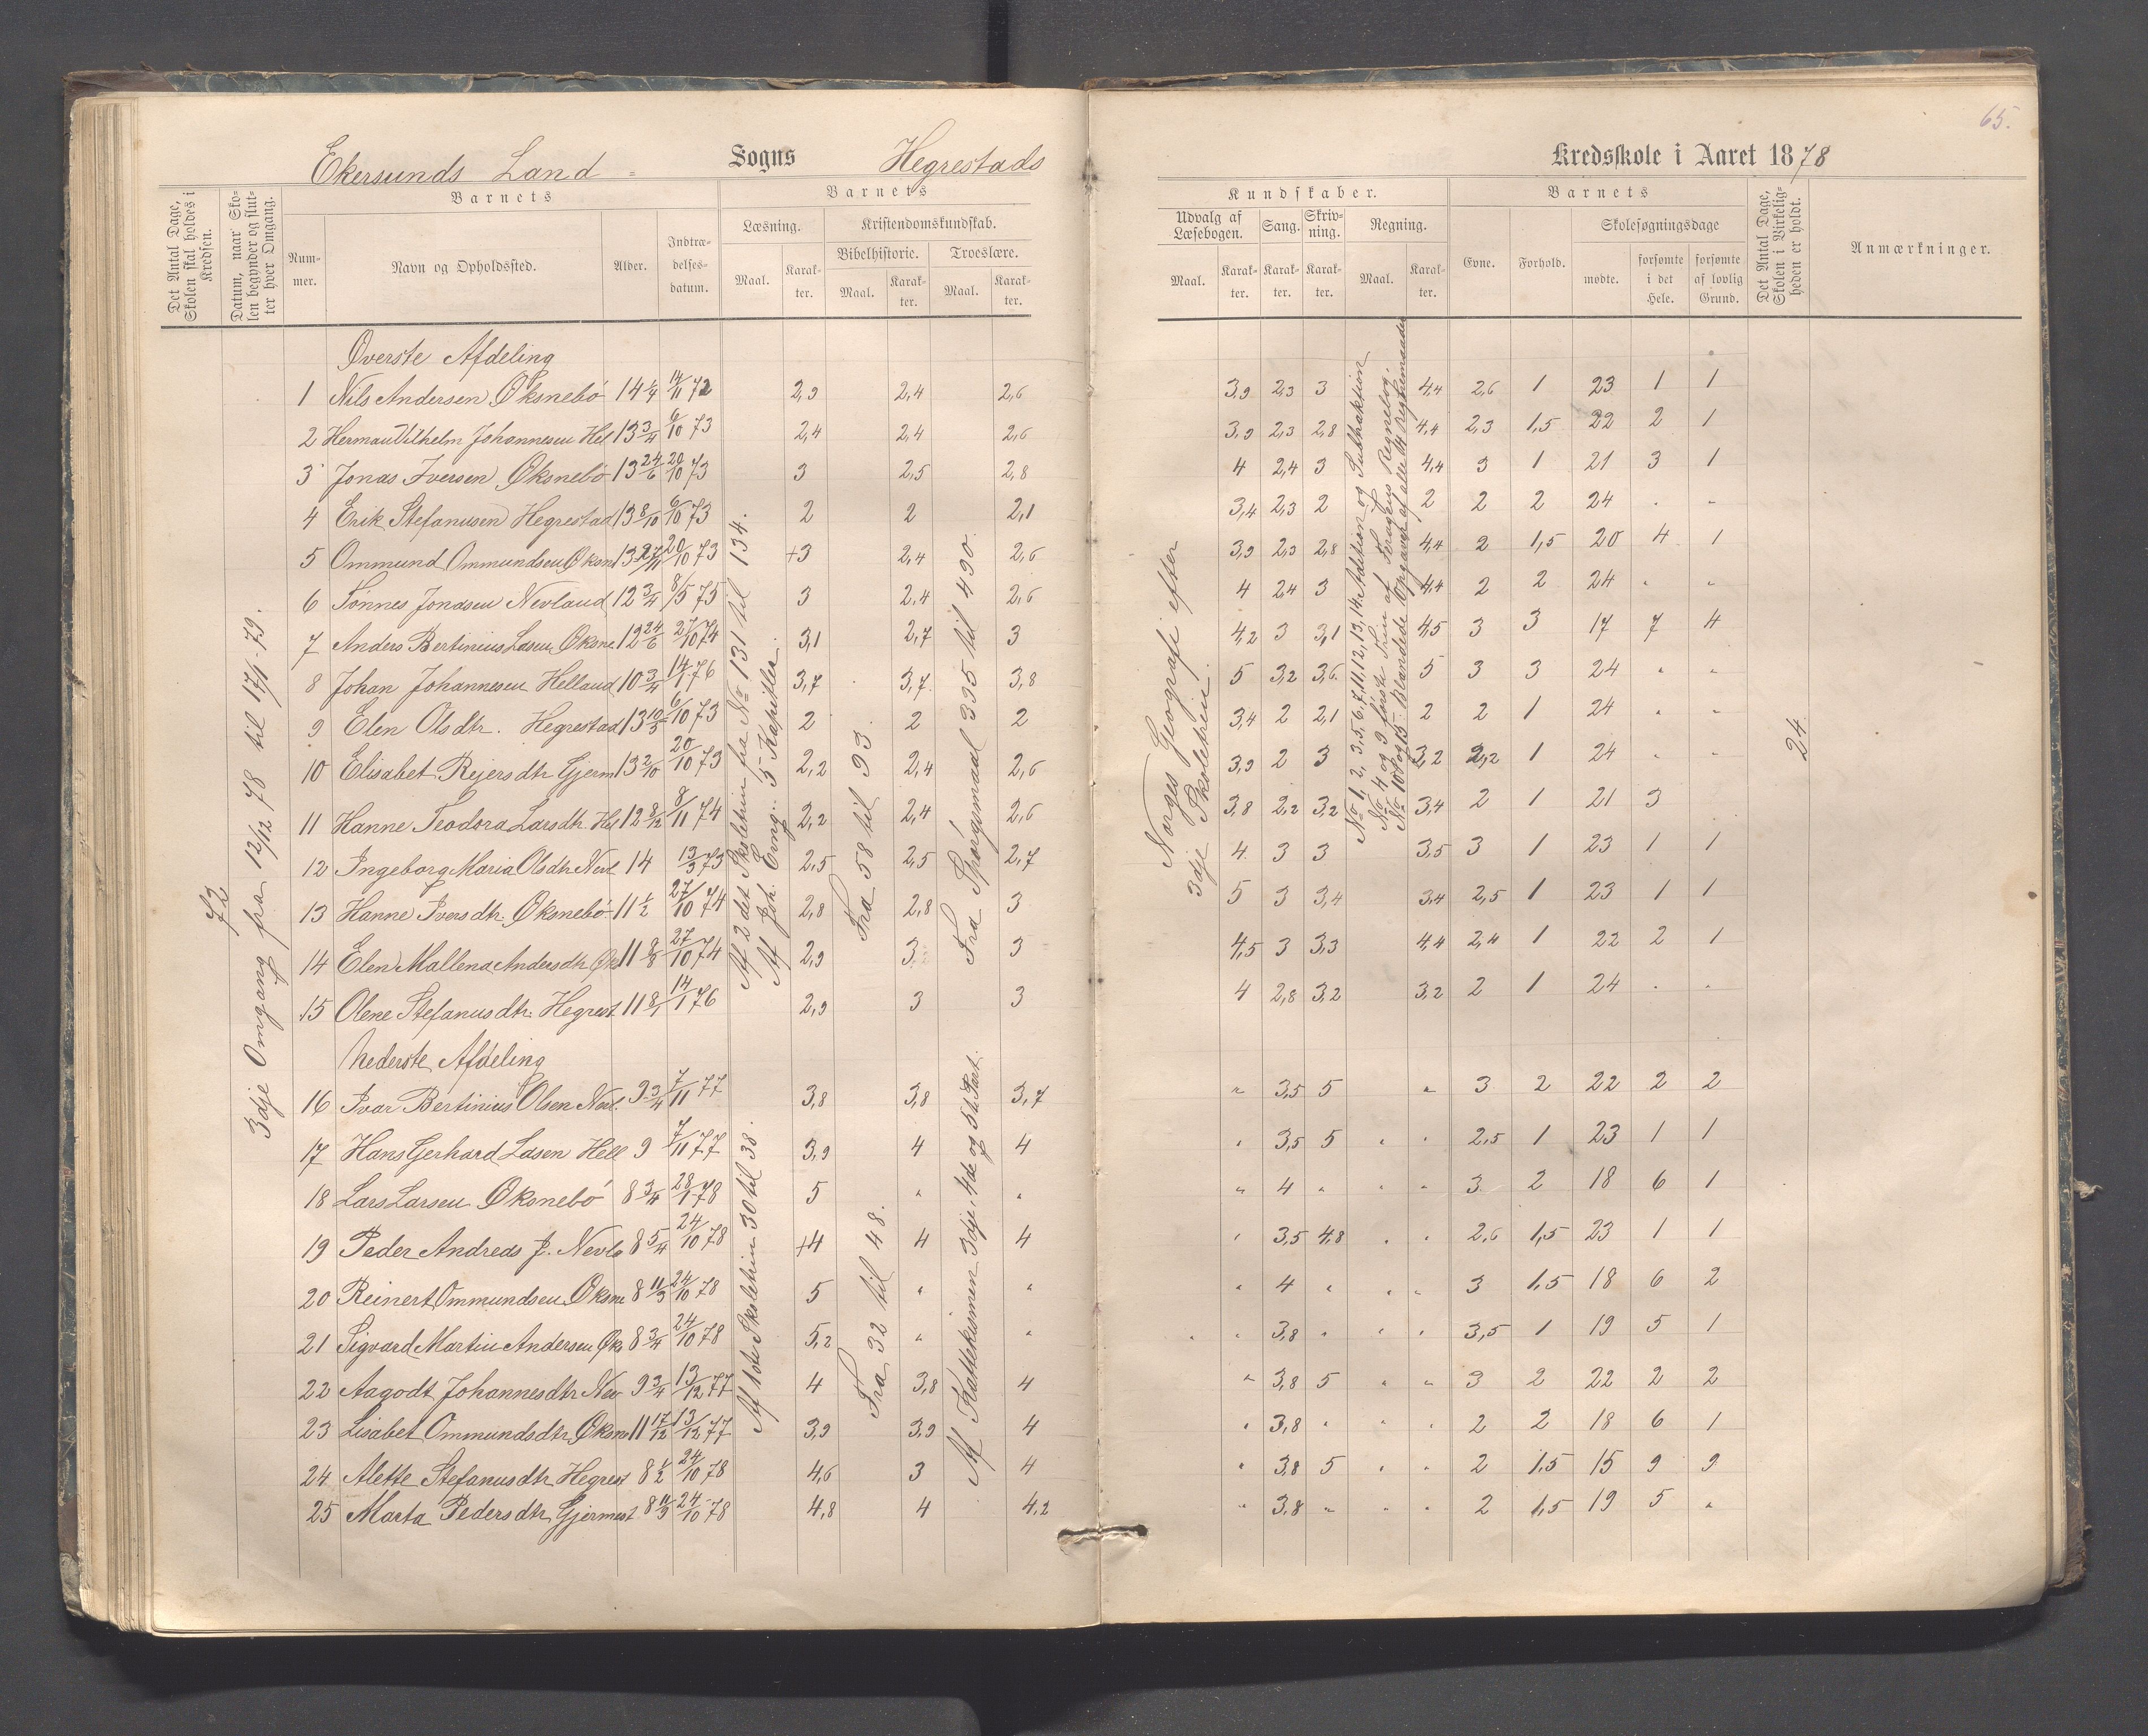 65.
Ekersunds Land - Sogns Hegrestads Kredsskole i Aaret 1878
Det Antal Dage, Skolen skal holdes i Kredsen.
Datum, naar Skolen begynder og slutter hver Omgang.
Barnets
Nummer.
Navn og Opholdssted.
Alder.
Indtrædelsesdatum.
Barnets
Læsning.
Maal.
Karakter.
Kristendomskundskab.
Bibelhistorie.
Maal.
Karakter.
Troeslære.
Maal.
Karakter.
Kundskaber.
Udvalg af Læsebogen.
Maal.
Karakter.
Sang.
Karakter.
Skrivning.
Karakter.
Regning.
Maal.
Karakter.
Barnets
Evne.
Forhold.
Skolesøgningsdage
mødte.
forsømte i det Hele.
forsømte af lovlig Grund.
Det Antal Dage, Skolen i Virkeligheden er holdt.
Anmærkninger.
72
3dje Omgang fra 12/12 78 til 17/1-79.
Af 2 det Skoletrin fra No 131 til 134.
Af Joh. Evng.: 5 Kapitler.
Fra 58 til 93
Fra Spørgsmaal 335 til 490.
Norges Geografi efter
3dje Skoletrin.
No 1, 2, 3, 5, 6, 7, 11, 12, 13, 14. Adition og Subthaktion
No 4 og 9 første Trin af Regnebog.
24
Øverste Afdeling
1 Nils Andersen Øksnebø 14 1/4 14/11 72 2,9 2,4 2,6 3,9 2,3 3 4,4 2,6 1 23 1 1
2 Herman Vilhelm Johannesen Hel 13 3/4 6/10 73 2,4 2,4 2,6 3,9 2,3 2,8 4,4 2,3 1,5 22 2 1
3 Jonas Iversen Øksnebø 13 24/6 20/10 73 3 2,5 2,8 4 2,4 3 4,4 3 1 21 3 1
4 Erik Stefanusen Hegrestad 13 8/10 6/10 73 2 2 2,1 3,4 2,3 2 2 2 2 24 . "
5 Ommund Ommundsen Øksn 13 27/11 20/10 73 +3 2,4 2,6 3,9 2,3 2,8 4,4 2 1,5 20 4 1
6 Tønnes Jonasen Nevland 12 3/4 8/5 75 3 2,4 2,6 4 2,4 3 4,4 2 2 24 " "
7 Anders Bertinius Lasen Øksne 12 24/6 27/10 74 3,1 2,7 3 4,2 3 3,1 4,5 3 3 17 7 4
8 Johan Johannesen Helland 10 3/4 14/1 76 3,7 3,7 3,8 5 3,2 3,6 5 3 3 24 " "
9 Elen Olsdtr. Hegrestad 13 10/3 6/10 73 2 2 2 3,4 2 2,1 2 2 1 24 " "
10 Elisabet Rejersdtr Gjerm 13 2/10 20/10 73 2,2 2,4 2,6 3,9 2 3 3,2 2,2 1 24 " "
11 Hanne Teodora Larsdtr. Hel 12 8/12 8/11 74 2,2 2,4 2,6 3,8 2,2 3,2 3,4 2 1 21 3
12 Ingeborg Maria Olsdtr Nevl 14 13/3 73 2,5 2,5 2,7 4 3 3 3,5 3 1 23 1 1
13 Hanne Iversdtr. Øksnebø 11 1/2 27/10 74 2,8 2,8 3 5 3 3,4 3,4 2,5 1 23 1 1
14 Elen Mallena Andersdtr Øks 11 8/8 27/10 74 2,9 3 3 4,5 3 3,3 4,4 2,4 1 22 2 1
15 Olene Stefanusdtr. Hegrest 11 8/1 14/1 76 2,9 3 3 4 2,8 3,2 3,2 2 1 24 . "
Nederste Afdeling
Af 1ste Skoletrin 30 til 38.
Fra 32 til 48.
Af Kattekismen 3dje, 4de og 5te Part.
16 Ivar Bertinius Olsen Nevl. 9 3/4 7/11 77 3,8 3,8 3,7 " 3,5 5 " 3 2 22 2 2
17 Hans Gerhard Lasen Hell 9 7/11 77 3,9 4 4 " 3,5 5 " " 2,5 1 23 1 1
18 Lars Larsen Øksnebø 8 3/4 28/1 78 5 " " " 4 " " " 3 2 18 6 1
19 Peder Andreas J. Nevla 8 5/4 24/10 78 +4 4 4 " 3,5 4,8 " " 2,6 1,5 23 1 1
20 Reinert Ommundsen Øksne 8 11/3 24/10 78 5 " " " 4 " " " 3 1,5 18 6 2
21 Sigvard Martin Andersen Øks 8 3/4 24/10 78 5,2 " " " " 3,8 " " " 3,5 1 19 5 1
22 Aagodt Johannesdtr Nev 9 3/4 13/12 77 4 3,8 4 " 3,8 5 " " 3 2 22 2 2
23 Lisabet Ommundsdtr. Øksn 11 17/12 13/12 77 3,9 3,9 4 " 3,8 " " " 2 2 18 6 1
24 Alette Stefanusdtr Hegrest 8 1/2 24/10 78 4,6 3 4 " 3,8 5 " " 2 1,5 15 9 9
25 Marta Pedersdtr Gjermest 8 11/9 24/10 78 4,8 4 4,2 " 3,8 " " " 2 1,5 19 5 "